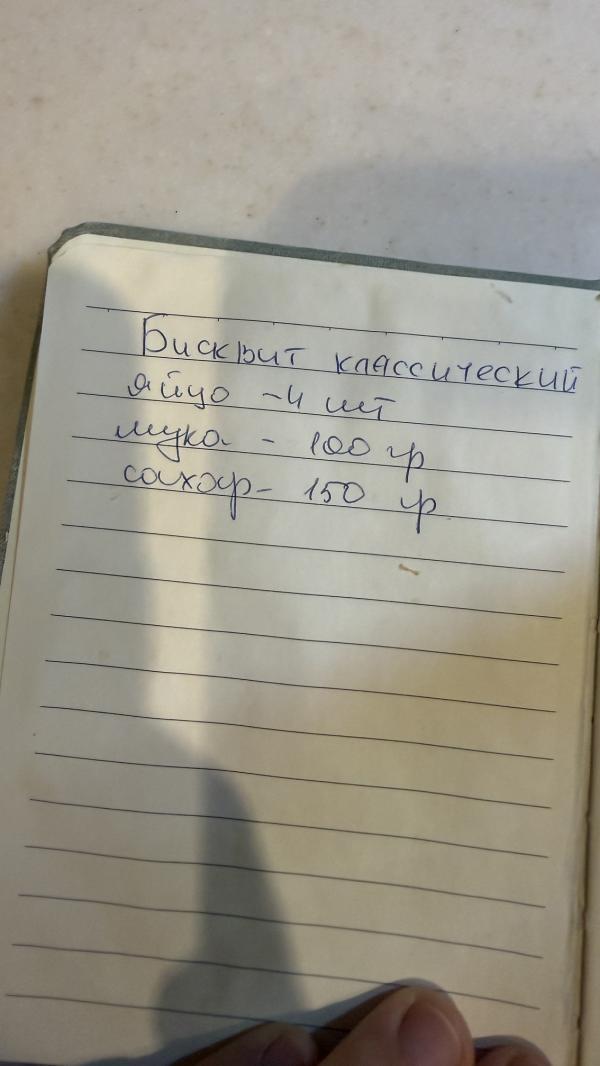 Бисквит классический
яйцо - 4 шт
мука - 100 гр
сахар - 150 гр